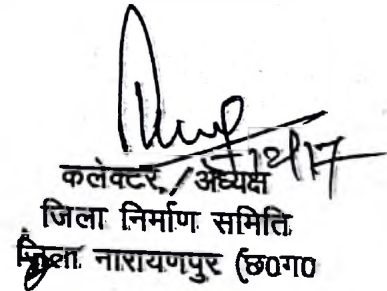 कलेक्टर / अध्यक्ष
जिला निर्माण समिति
जिला नारायणपुर (छ०ग०